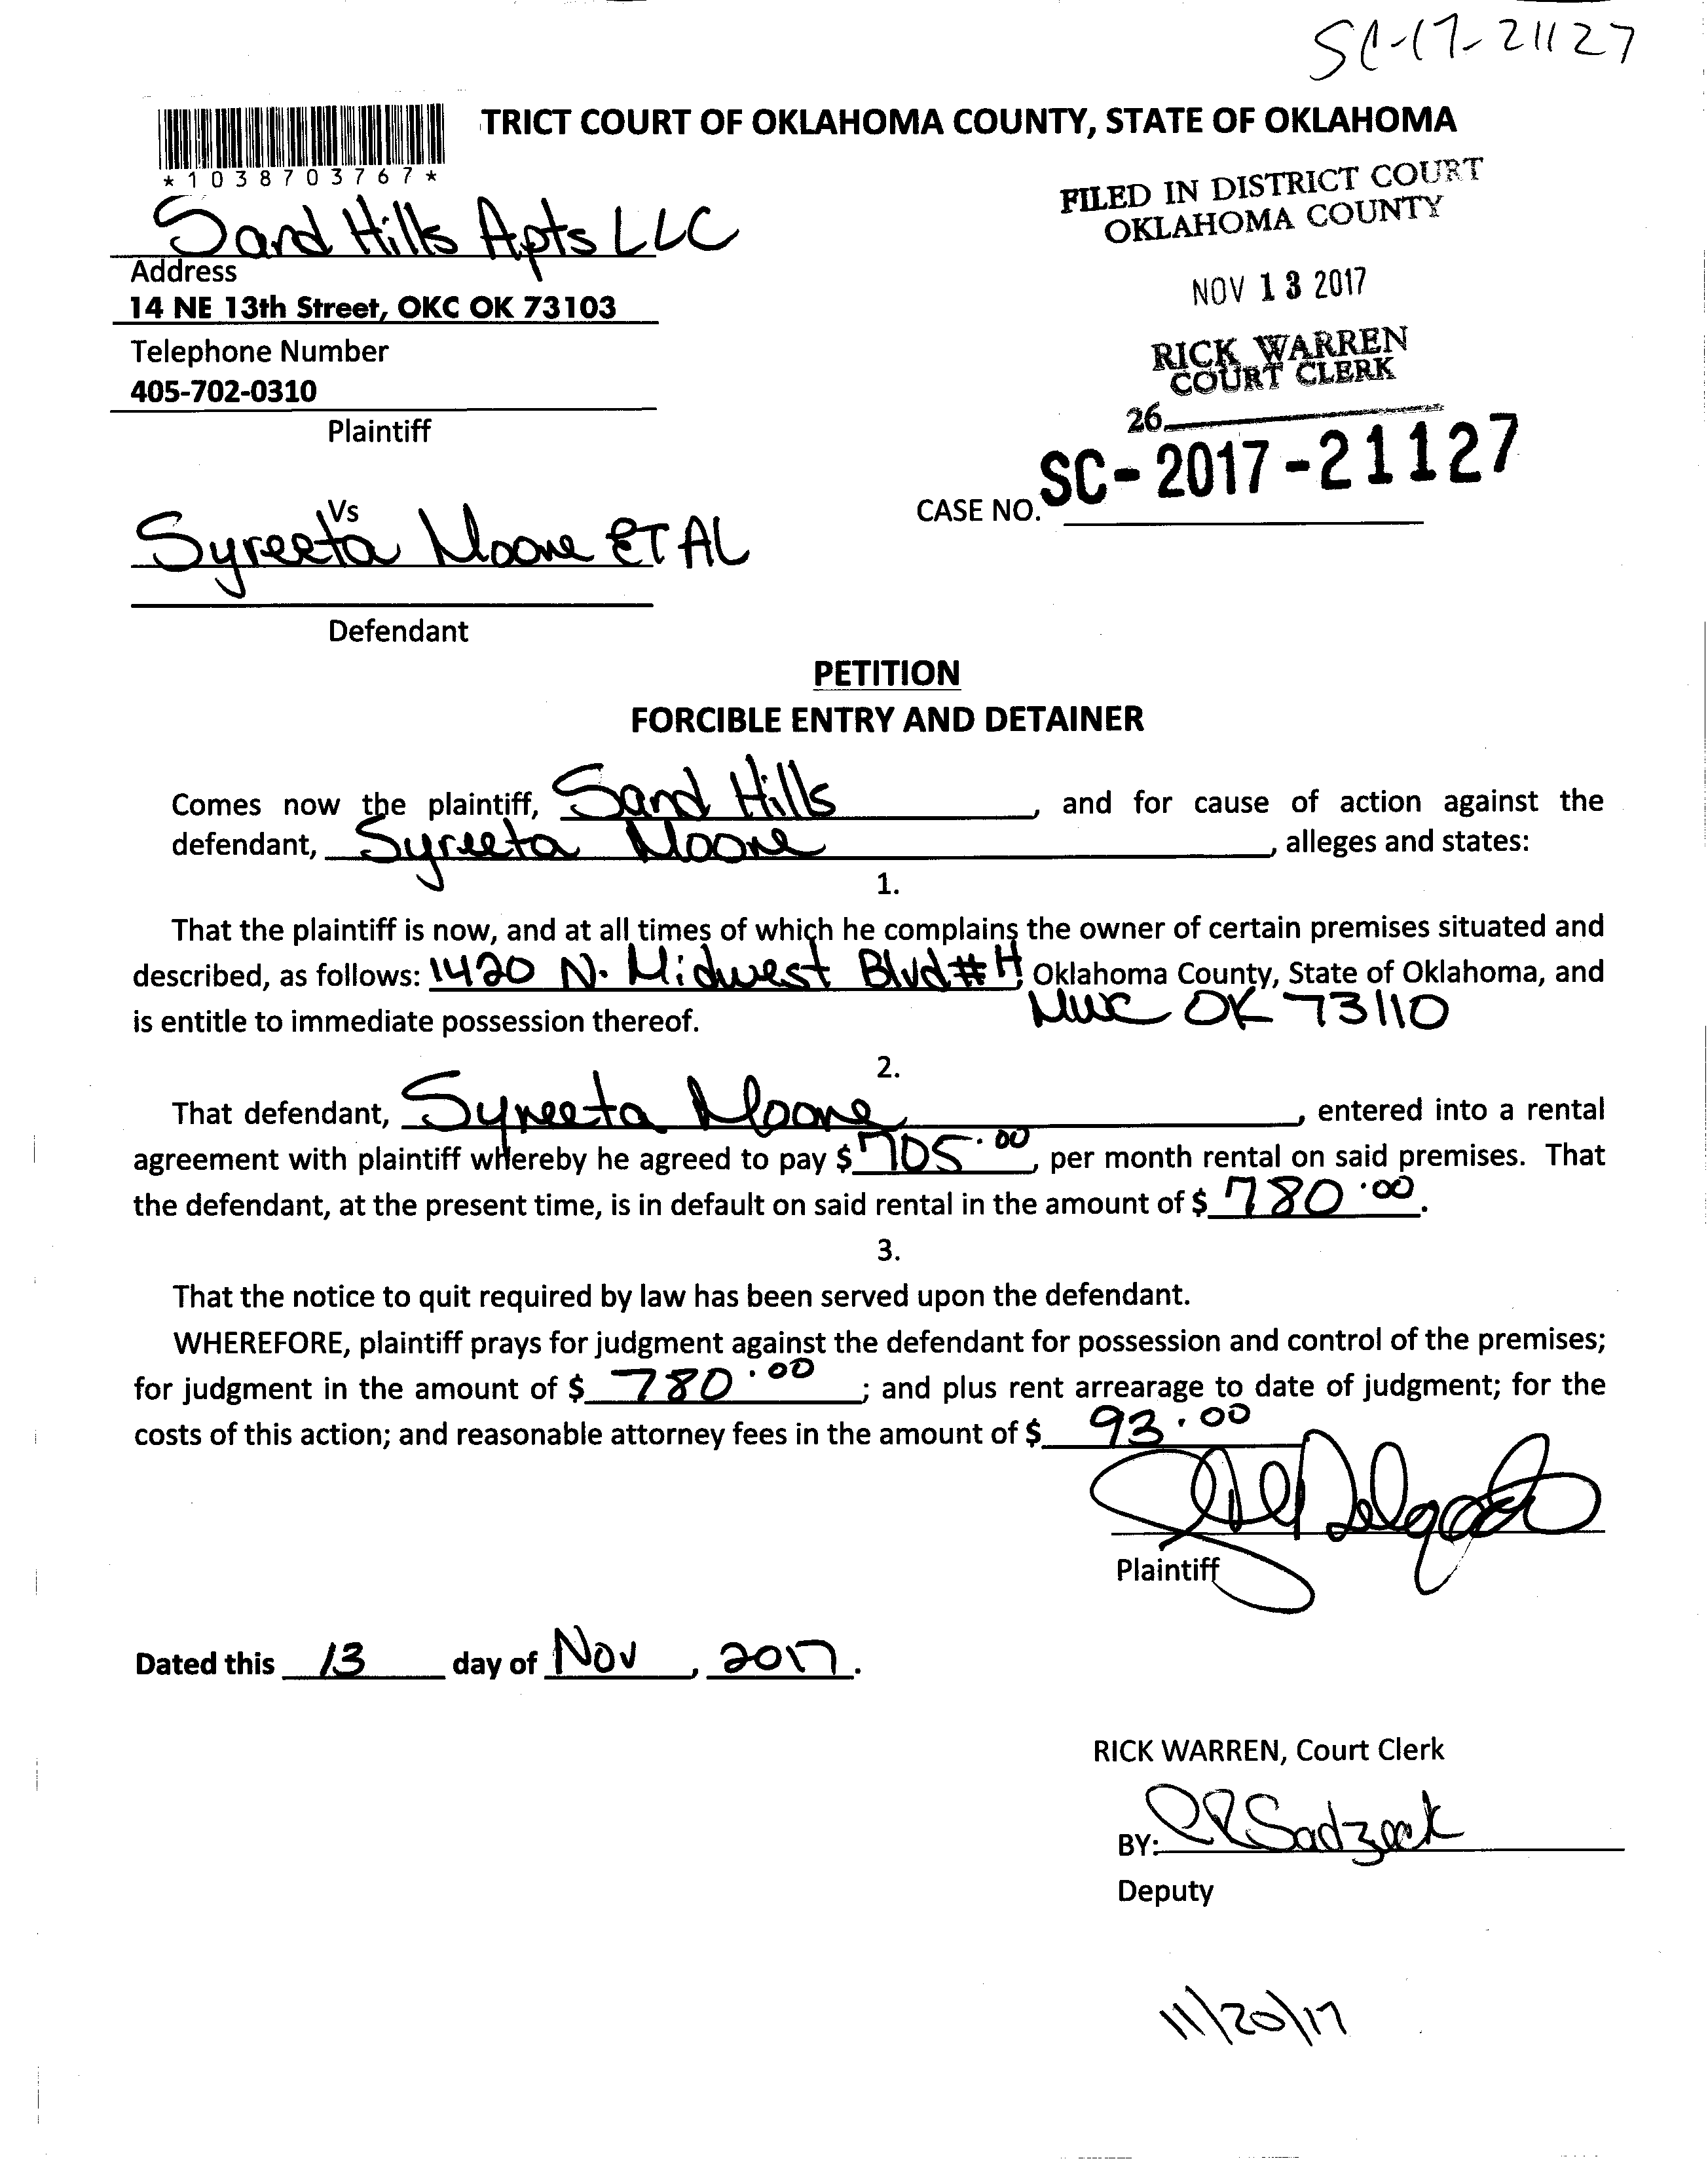 SC-17-21127
TRICT COURT OF OKLAHOMA COUNTY, STATE OF OKLAHOMA
*1038703767*
FILED IN DISTRICT COURT
OKLAHOMA COUNTY
Sand Hills Apts LLC
Address
14 NE 13th Street, OKC OK 73103
NOV 13 2017
Telephone Number
RICK WARREN
COURT CLERK
405-702-0310
26
Plaintiff
CASE NO. SC-2017-21127
Vs
Syreeta Moore ET AL
Defendant
PETITION
FORCIBLE ENTRY AND DETAINER
Comes now the plaintiff, Sand Hills, and for cause of action against the
defendant, Syreeta Moore, alleges and states:
1.
That the plaintiff is now, and at all times of which he complains the owner of certain premises situated and
described, as follows: 1420 N. Midwest Blvd #H, Oklahoma County, State of Oklahoma, and
is entitle to immediate possession thereof. MWC OK 73110
2.
That defendant, Syreeta Moore, entered into a rental
agreement with plaintiff whereby he agreed to pay $ 705.00, per month rental on said premises. That
the defendant, at the present time, is in default on said rental in the amount of $ 780.00.
3.
That the notice to quit required by law has been served upon the defendant.
WHEREFORE, plaintiff prays for judgment against the defendant for possession and control of the premises;
for judgment in the amount of $ 780.00; and plus rent arrearage to date of judgment; for the
costs of this action; and reasonable attorney fees in the amount of $ 93.00
Delgado
Plaintiff
Dated this 13 day of Nov, 2017.
RICK WARREN, Court Clerk
BY:
Deputy
11/20/17